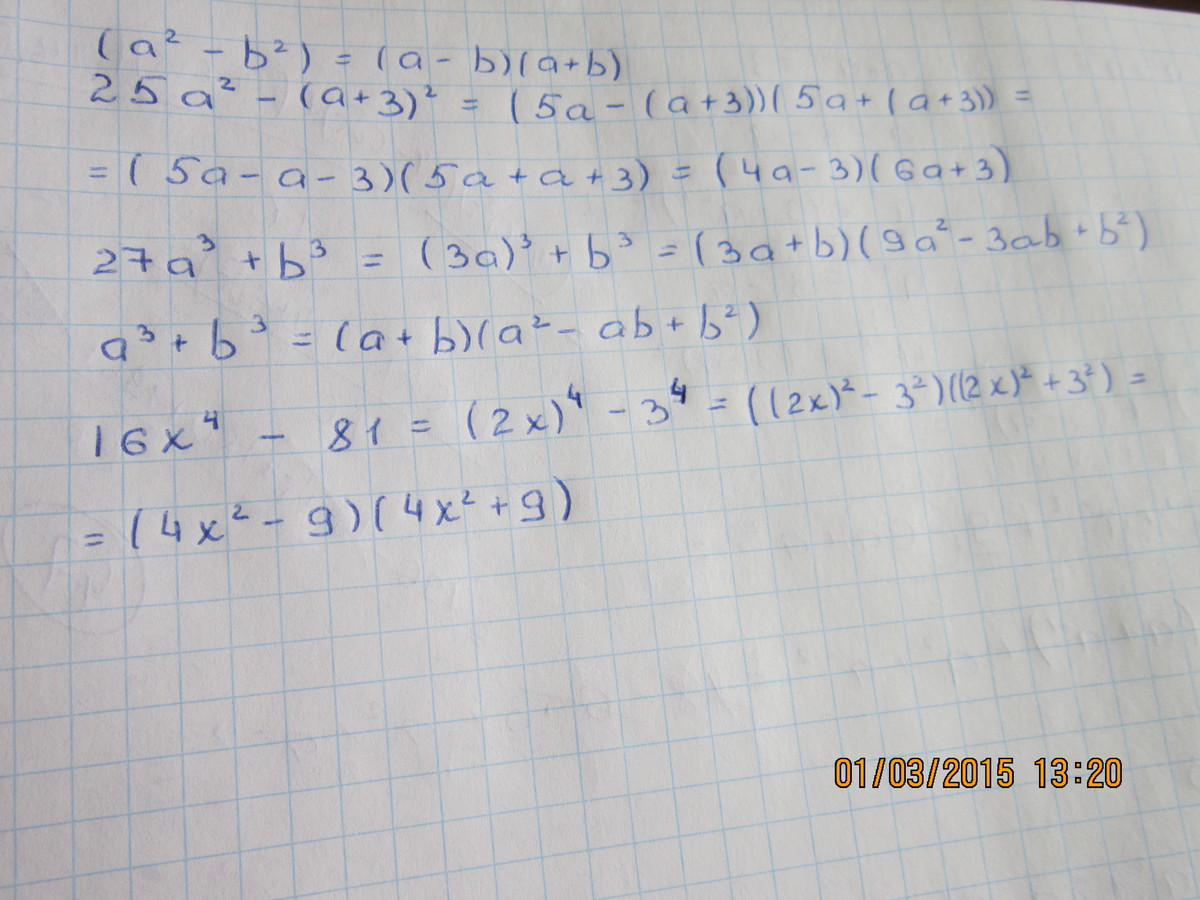 (a² - b²) = (a - b)(a+b)
25a² - (a+3)² = (5a - (a+3))(5a + (a+3)) =
= (5a - a - 3)(5a + a + 3) = (4a - 3)(6a + 3)
27a³ + b³ = (3a)³ + b³ = (3a + b)(9a² - 3ab + b²)
a³ + b³ = (a + b)(a² - ab + b²)
16x⁴ - 81 = (2x)⁴ - 3⁴ = ((2x)² - 3²)((2x)² + 3²) =
= (4x² - 9)(4x² + 9)
01/03/2015 13:20